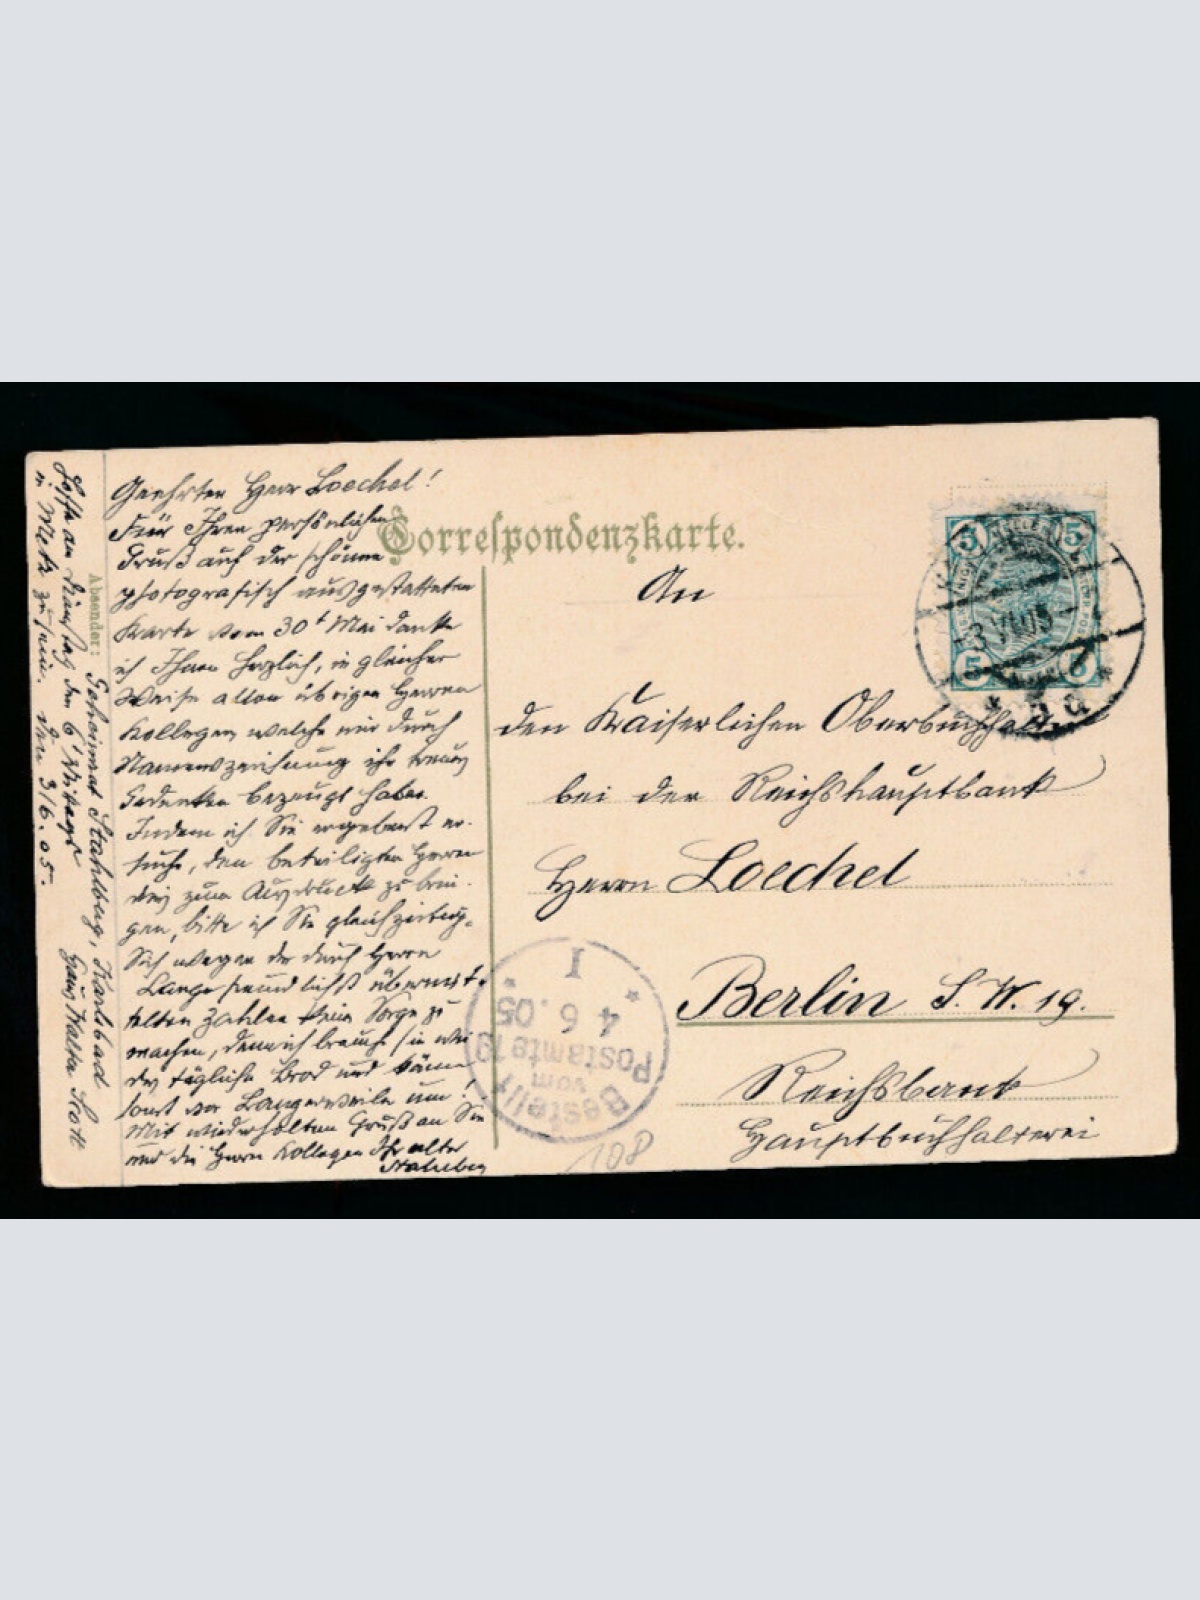 Geehrter Herr Loechel!
Für Ihren persönlichen
Gruß auf der schönen
photografisch ausgestatteten
Karte vom 30t Mai danke
ich Ihnen herzlich, in gleicher
Weise allen übrigen Herren
Kollegen welche mir durch
Namenszeichnung ihr treues
Gedenken bezeugt haben.
Indem ich Sie ergebenst er-
suche, den beteiligten Herren
dies zum Ausdruck zu brin-
gen, bitte ich Sie gleichzeitig,
Sich wegen der durch Herrn
Lange freundlichst übermit-
telten Zahlen keine Sorge zu
machen, denn ich brauche sie wie
das tägliche Brod und käme
sonst vor Langerweile um!
Mit wiederholten Gruß an Sie
und die Herren Kollegen Ihr alter
Stahlberg
Absender: Geheimrat Stahlberg, Karlsbad
Haus Walter Scott
Hoffe am Dienstag den 6t Mittags
in Metz zu sein. 3/6.05.
Correspondenzkarte.
An
den Kaiserlichen Oberbuchhalter
bei der Reichshauptbank
Herrn Loechel
Berlin S.W. 19.
Reichsbank
Hauptbuchhalterei
5 5
5 5
3 VI 05
Bestellt
vom
Postamte 19
4 6. 05
I
108